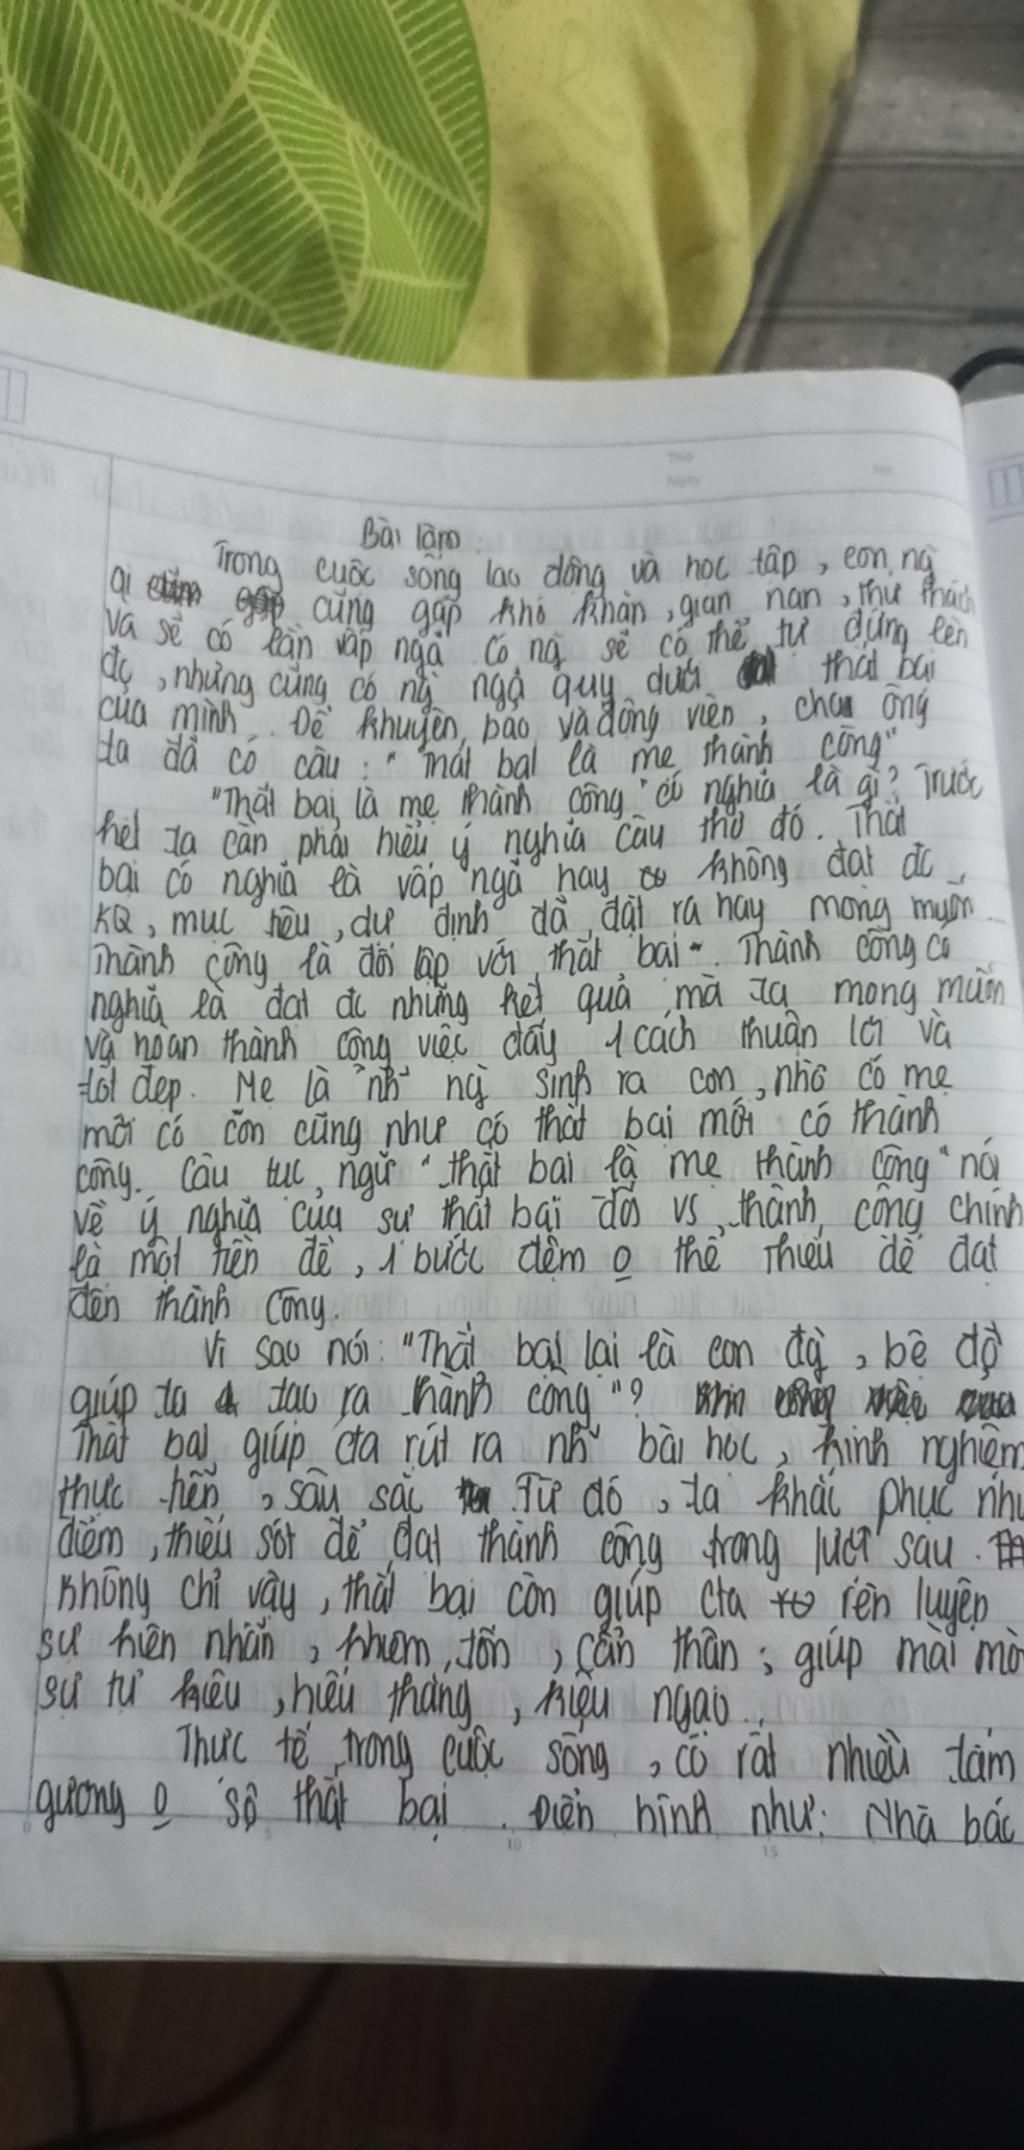 Bài làm:
Trong cuộc sống lao động và học tập, con ng̀
ai cũng gặp khó khăn, gian nan, thử thách
và sẽ có lần vấp ngã. Có ng̀ sẽ có thể tự đứng lên
đc, nhưng cũng có ng̀ ngã quỵ dưới thất bại
của mình. Để khuyên bảo và động viên, cha ông
ta đã có câu: "Thất bại là mẹ thành công"
"Thất bại là mẹ thành công" có nghĩa là gì? Trước
hết ta cần phải hiểu ý nghĩa câu thơ đó. Thất
bại có nghĩa là vấp ngã hay không đạt đc
KQ, mục tiêu, dự định đã đặt ra hay mong muốn.
Thành công là đối lập với thất bại. Thành công có
nghĩa là đạt đc những kết quả mà ta mong muốn
và hoàn thành công việc đấy 1 cách thuận lợi và
tốt đẹp. Mẹ là nh~ ng̀ sinh ra con, nhờ có mẹ
mới có con cũng như có thất bại mới có thành
công. Câu tục ngữ "thất bại là mẹ thành công" nói
về ý nghĩa của sự thất bại đối vs thành công chính
là một tiền đề, 1 bước đệm o thể thiếu để đạt
đến thành công.
Vì sao nói: "Thất bại lại là con đg̀, bệ đỡ
giúp ta tạo ra thành công"?
Thất bại giúp cta rút ra nh~ bài học, kinh nghiệm
thực tiễn, sâu sắc. Từ đó, ta khắc phục nhự
điểm, thiếu sót để đạt thành công trong lượt sau.
Không chỉ vậy, thất bại còn giúp cta rèn luyện
sự kiên nhẫn, khiêm tốn, cẩn thận; giúp mài mò
sự tự kiêu, hiếu thắng, kiêu ngạo...
Thực tế trong cuộc sống, có rất nhiều tấm
gương o sợ thất bại. Điển hình như: Nhà bác